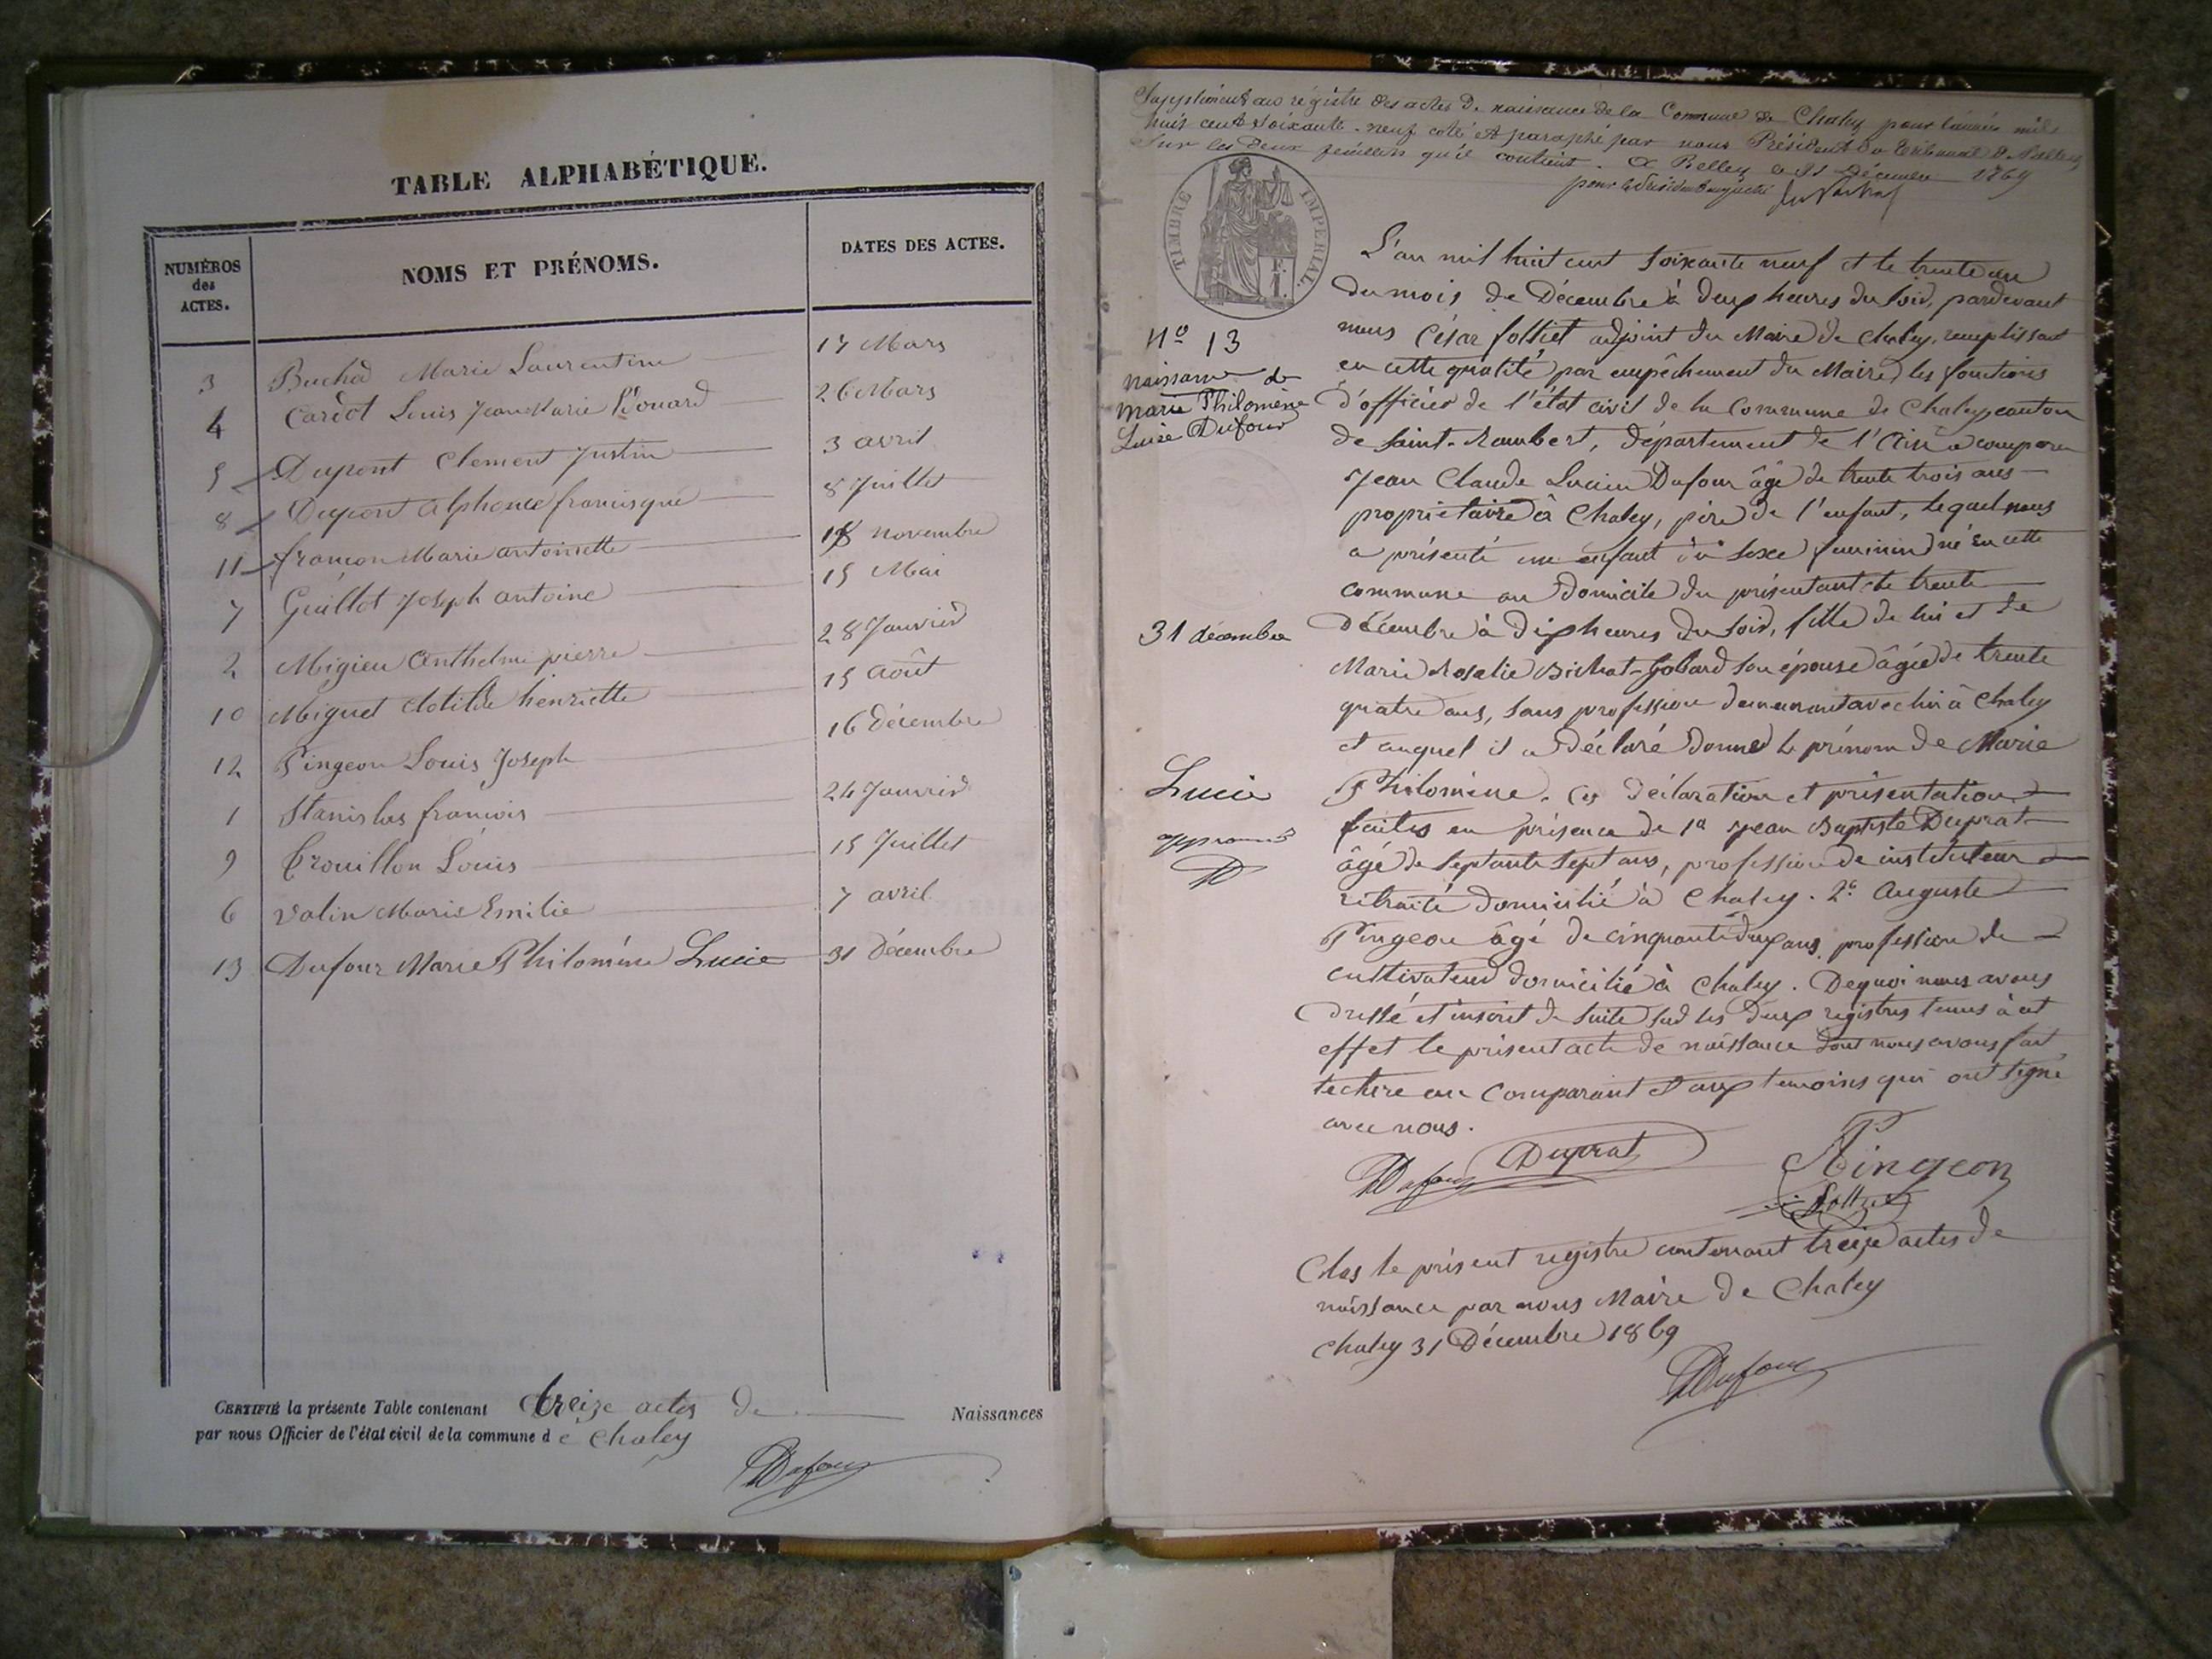 TABLE ALPHABÉTIQUE.
NUMÉROS des ACTES.
NOMS ET PRÉNOMS.
DATES DES ACTES.
3 Buchd Marie Laurentine 17 Mars
4 Cardot Louis Jean Marie Edouard 26 Mars
5 Dupont Clement Justin 3 avril
8 Dupont Alphonse francisque 8 Juillet
11 françon Marie antoinette 18 novembre
7 Guillot Joseph antoine 15 Mai
2 Migieu Anthelme pierre 28 Janvier
10 Miguet Clotilde henriette 15 Août
12 Pingeon Louis Joseph 16 décembre
1 Stanislas francois 24 Janvier
9 Trouillon Louis 15 Juillet
6 Valin Marie Emilie 7 avril
13 Dufour Marie Philoméne Lucie 31 décembre
CERTIFIÉ la présente Table contenant treize actes de Naissances
par nous Officier de l'état civil de la commune de Chaley
Dufour
Supplément au régistre des actes de naissance de la Commune de Chaley pour l'année mil
huit cent soixante-neuf coté et paraphé par nous Président du tribunal de Belley
Sur les deux feuillets qu'il contient. A Belley le 31 décembre 1869
pour le Président empêché
TIMBRE IMPÉRIAL.
1 F.
N° 13
naissance de
Marie Philomène
Lucie Dufour
31 décembre
Lucie
approuvé
D
L'an mil huit cent soixante neuf et le trente un
du mois de Décembre à deux heures du soir, pardevant
nous César folliet adjoint du Maire de Chaley, remplissant
en cette qualité, par empêchement du Maire, les fonctions
d'officier de l'état civil de la Commune de Chaley canton
de Saint-Rambert, département de l'Ain a comparu
Jean Claude Lucien Dufour âgé de trente trois ans
propriétaire à Chaley, père de l'enfant, lequel nous
a présenté un enfant du sexe feminin né en cette
commune au domicile du présentant le trente
Décembre à dix heures du soir, fille de lui et de
Marie Rosalie Bichat-Gobard son épouse âgée de trente
quatre ans, sans profession demeurant avec lui à Chaley
et auquel il a déclaré donner le prénom de Marie
Philomène. Ces déclaration et présentation
faites en présence de 1° Jean Baptiste Duprat
âgé de septante sept ans, profession de instituteur
retraité domicilié à Chaley. 2° Auguste
Pingeon âgé de cinquante deux ans profession de
cultivateur domicilié à Chaley. De quoi nous avons
dressé et inscrit de suite sur les deux registres tenus à cet
effet le présent acte de naissance dont nous avons fait
lecture au comparant et aux temoins qui ont signé
avec nous.
Dufour Duprat Pingeon
Folliet
Clos le présent registre contenant treize actes de
naissance par nous Maire de Chaley
Chaley 31 Décembre 1869
Dufour